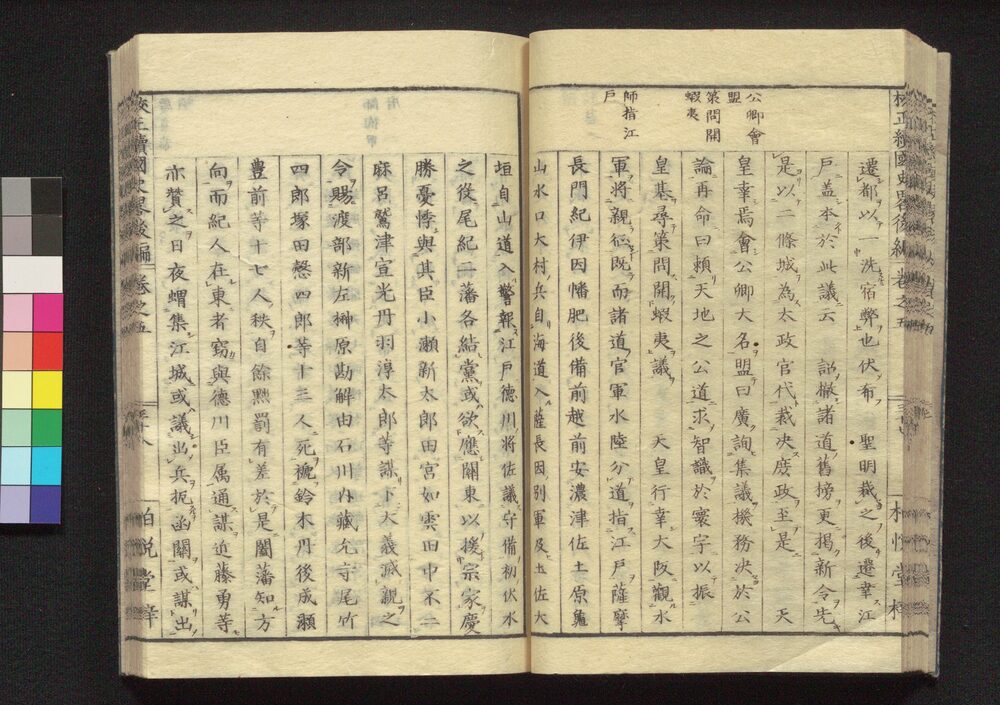 遷都以一洗宿弊也伏布　聖明裁之後遷幸江
戶盖本於此議云　詔撤諸道舊榜更揭新令先
是以二條城為太政官代裁决庶政至是　天
皇幸焉會公卿大名盟曰廣詢集議機務决於公
論再命曰賴天地之公道求智識於寰宇以振
皇基尋策問開蝦夷議　天皇行幸大阪觀水
軍將親征既而諸道官軍水陸分道指江戶薩摩
長門紀伊因幡肥後備前越前安濃津佐土原龜
山水口大村兵自海道入薩長因別軍及土佐大
公卿會
盟
策問開
蝦夷
師指江
戶
垣自山道入警報江戶德川將佐議守備初伏水
之役尾紀二藩各結黨或欲應關東以援宗家慶
勝憂悸與其臣小瀬新太郎田宮如雲田中不二
麻呂鷲津宣光丹羽淳太郎等謀下大義滅親之
令賜渡部新左榊原勘解由石川内藏允寺尾竹
四郎塚田慤四郎等十三人死褫鈴木丹後成瀬
豊前等十七人秩自餘黙罰有差於是闔藩知方
向而紀人在東者竊與德川臣属通謀近藤勇等
亦贊之日夜蝟集江城或議出兵扼函關或謀出
校正續國史畧後編　卷之五
柏悦堂梓